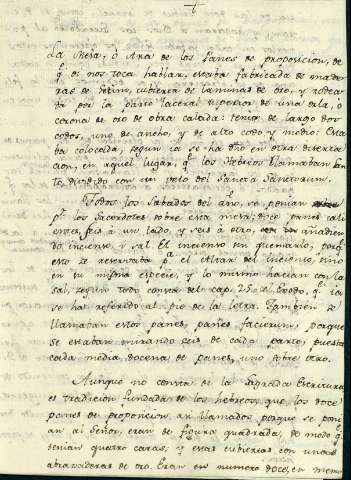 La Mesa, ò Ara de los Panes de proposicion, de
q.e se nos toca hablar, estaba fabricada de made-
ras de Setin, cubierta de laminas de oro, y rodea-
da por la parte lateral superior de una orla, ò
corona de oro de obra calada: tenia de largo dos
codos, uno de ancho, y de alto codo y medio: Esta-
ba colocada, segun ia se ha dho en otra diserta-
cion, en aquel lugar, q.e los Hebreos llamaban San-
to, dividido con un velo del Sancta Sanctorum.
Todos los Sabados del año, se ponian
p.r los Sacerdotes sobre esta mesa, doce panes cali-
entes, seis à un lado, y seis à otro, añadien-
do incienso, y sal. El incienso sin quemarlo, porq.e
esto se reservaba p.a el Altar del incienso, sino
en su misma especie, y lo mismo hacian con la
sal, segun todo consta del cap. 25 del Exodo, q.e ia
se ha referido al pie de la letra. Tambien se
llamaban estos panes, panes facierum, porque
se estaban mirando seis de cada parte, puesta
cada media docena de panes, uno sobre otro.
Aunque no consta de la Sagrada Escritura
es tradicion fundada de los hebreos, que los doce
panes de proposicion, asi llamados porque se poni-
an al Señor, eran de figura quadrada, de modo q.e
tenian quatro caras, y estas cubiertas con unas
abrazaderas de oro. Eran en numero doce, en memo